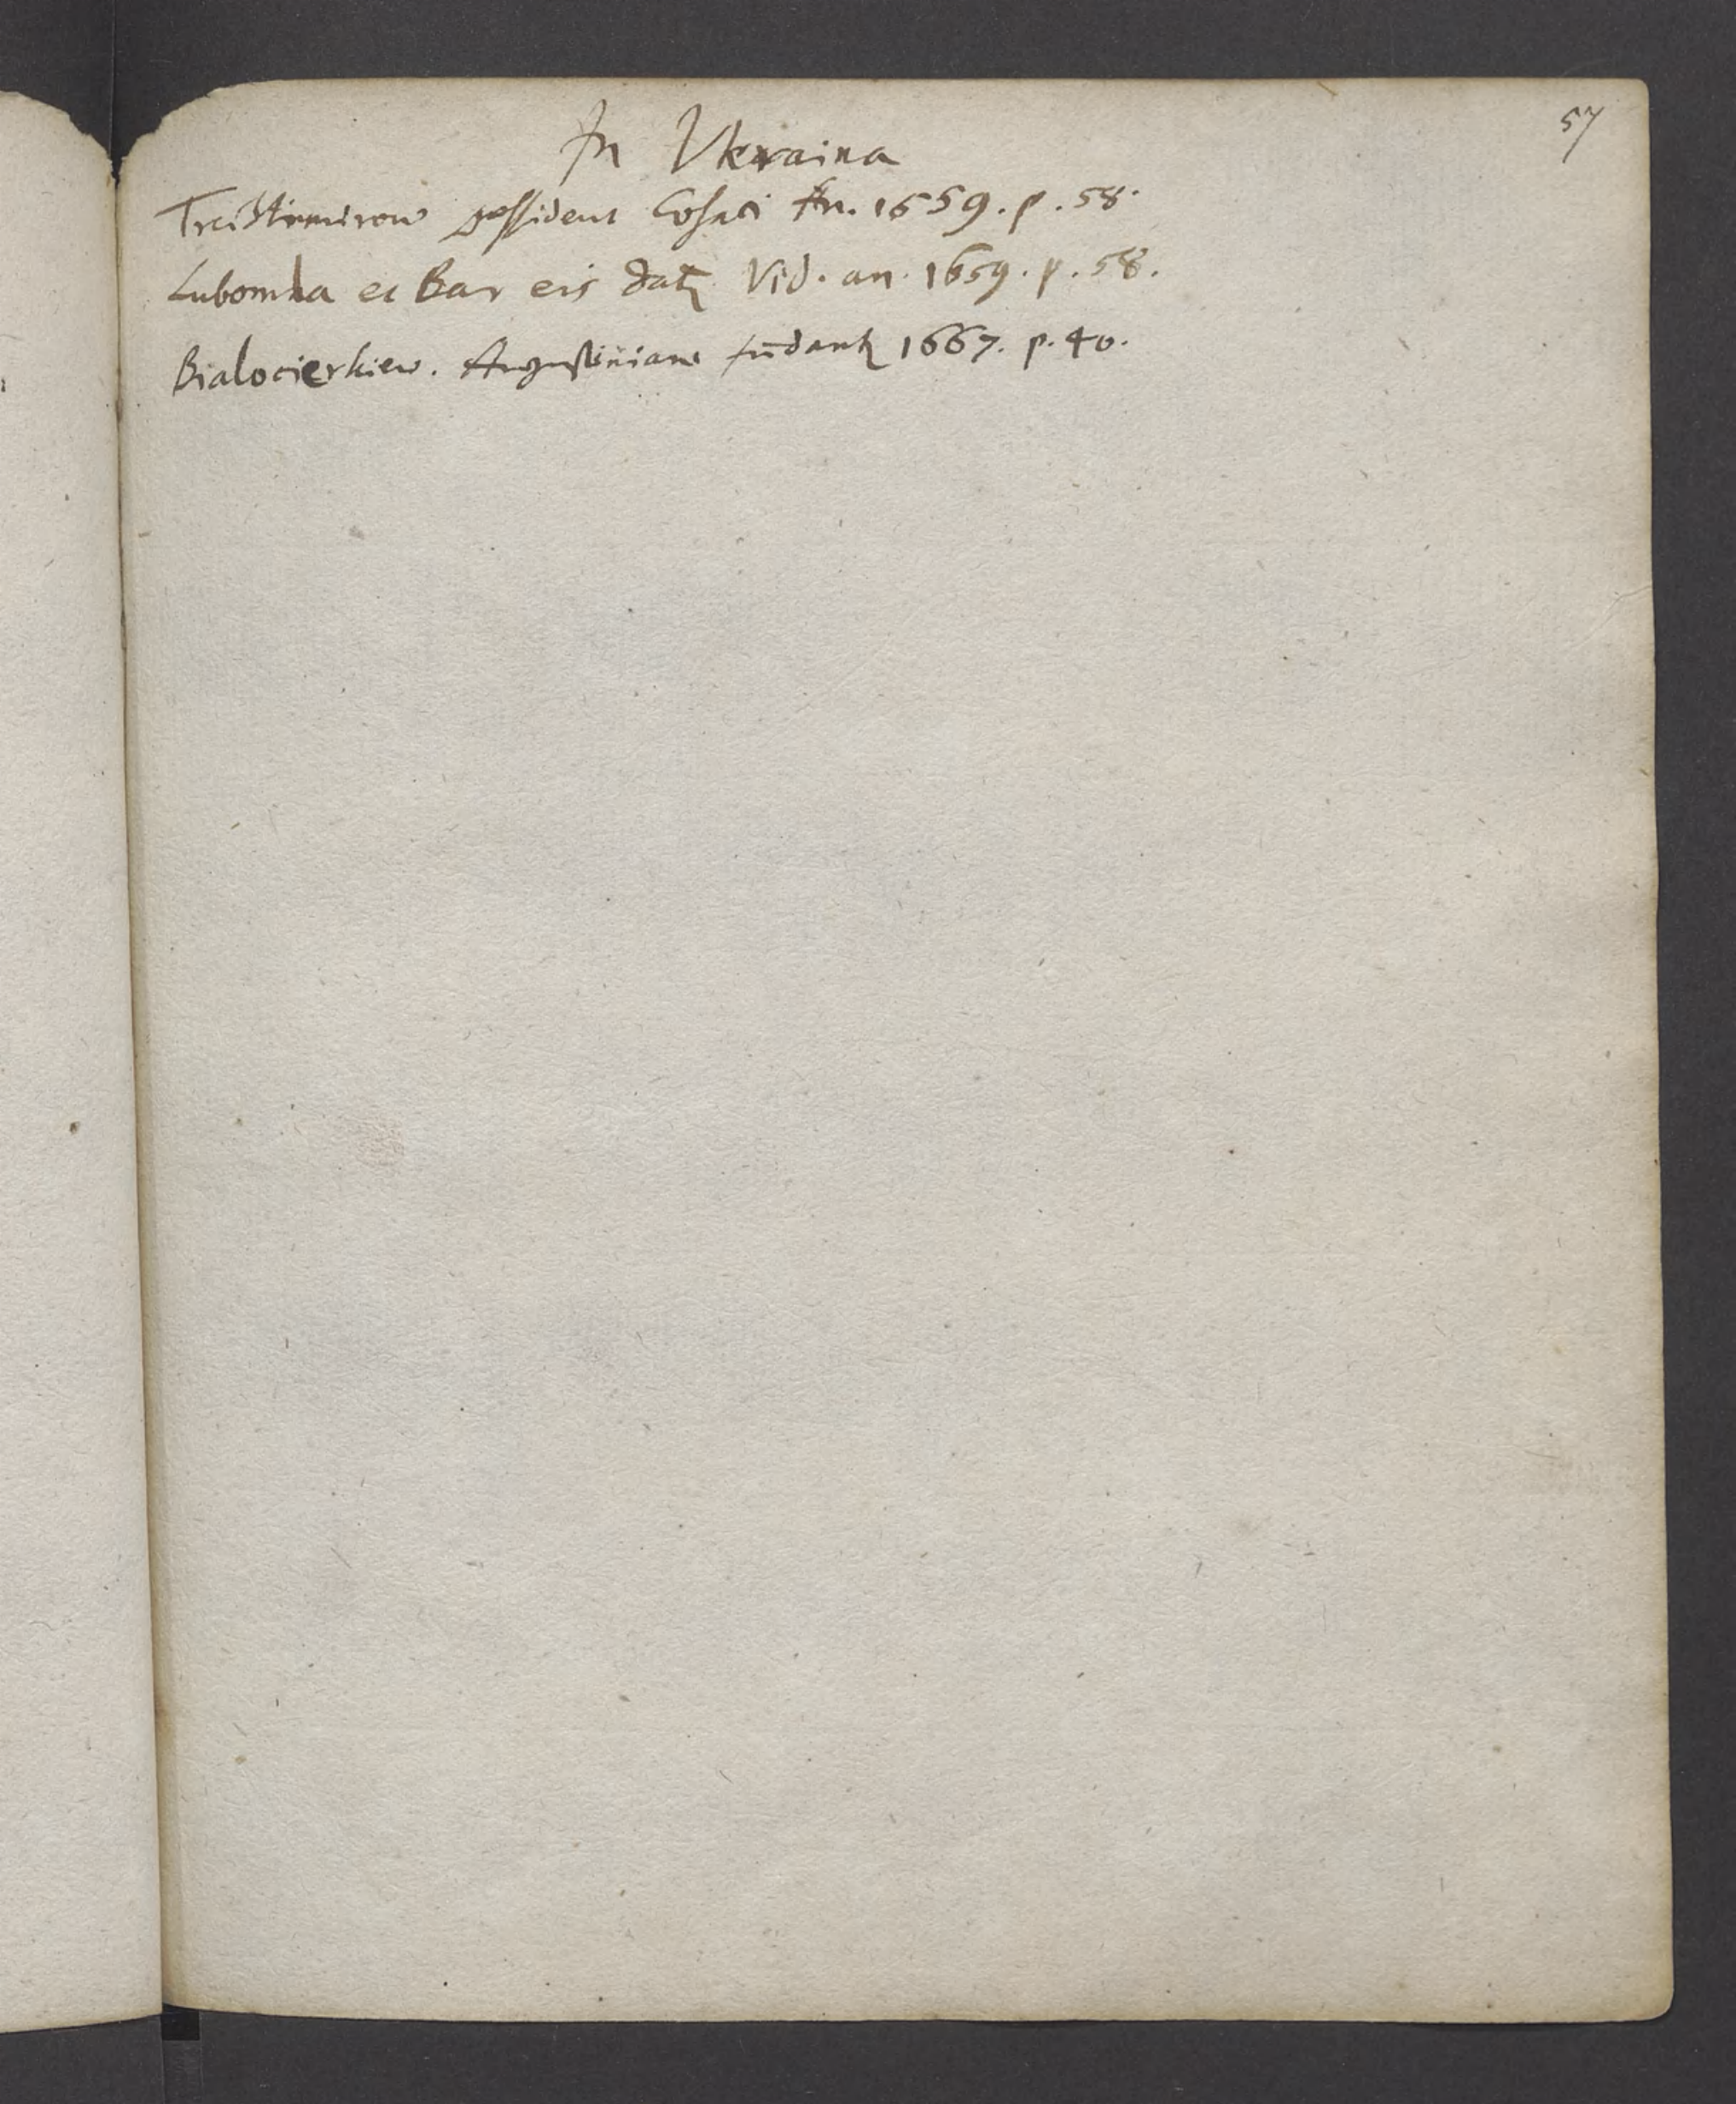 57
In Vkraina
Trcistimirow possident Cosaci An. 1659. p. 58.
Lubomla et Bar eis datꝫ Vid. an. 1659. p. 58.
Bialocierkiew. Augustiniani fūdantꝫ 1667. p. 40.